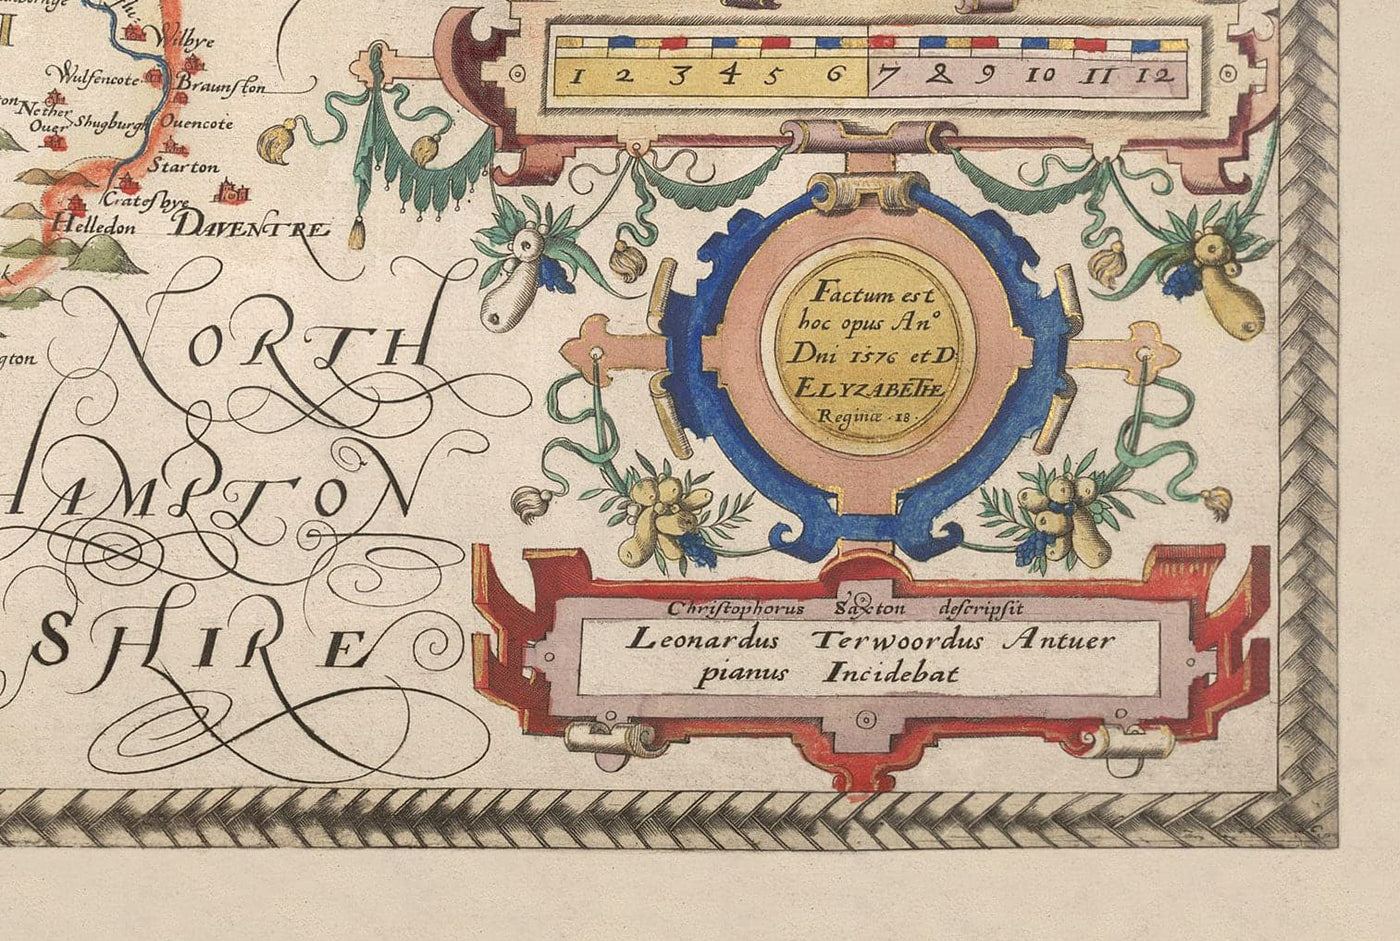 flu:
Wilbye
Wulfencote
Braunston
Nether
Ouer
Shugburgh
Ouencote
Starton
Cratesbye
Helledon
DAVENTRE
NORTH
HAMPTON
SHIRE
1 2 3 4 5 6 7 8 9 10 11 12
Factum est
hoc opus Anº
Dni 1576 et D:
ELYZABETHE
Reginæ · 18 ·
Christophorus Saxton descripsit
Leonardus Terwoordus Antuer
pianus Incidebat